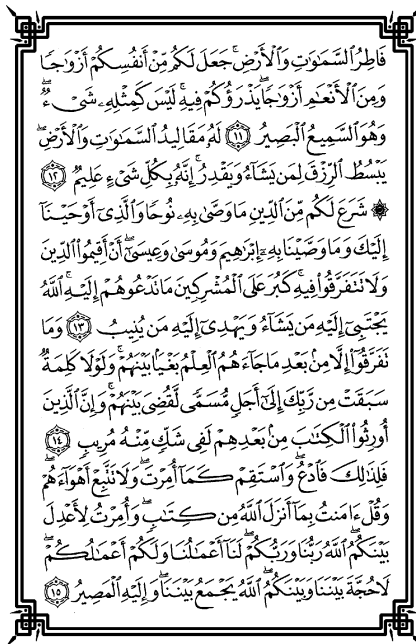 فَاطِرُ ٱلسَّمَٰوَٰتِ وَٱلْأَرْضِ ۚ جَعَلَ لَكُم مِّنْ أَنفُسِكُمْ أَزْوَٰجًا
وَمِنَ ٱلْأَنْعَٰمِ أَزْوَٰجًا ۖ يَذْرَؤُكُمْ فِيهِ ۚ لَيْسَ كَمِثْلِهِۦ شَىْءٌ ۖ
وَهُوَ ٱلسَّمِيعُ ٱلْبَصِيرُ ۝١١ لَهُۥ مَقَالِيدُ ٱلسَّمَٰوَٰتِ وَٱلْأَرْضِ ۖ
يَبْسُطُ ٱلرِّزْقَ لِمَن يَشَآءُ وَيَقْدِرُ ۚ إِنَّهُۥ بِكُلِّ شَىْءٍ عَلِيمٌ ۝١٢
۞ شَرَعَ لَكُم مِّنَ ٱلدِّينِ مَا وَصَّىٰ بِهِۦ نُوحًا وَٱلَّذِىٓ أَوْحَيْنَآ
إِلَيْكَ وَمَا وَصَّيْنَا بِهِۦٓ إِبْرَٰهِيمَ وَمُوسَىٰ وَعِيسَىٰٓ ۖ أَنْ أَقِيمُوا۟ ٱلدِّينَ
وَلَا تَتَفَرَّقُوا۟ فِيهِ ۚ كَبُرَ عَلَى ٱلْمُشْرِكِينَ مَا تَدْعُوهُمْ إِلَيْهِ ۚ ٱللَّهُ
يَجْتَبِىٓ إِلَيْهِ مَن يَشَآءُ وَيَهْدِىٓ إِلَيْهِ مَن يُنِيبُ ۝١٣ وَمَا
تَفَرَّقُوٓا۟ إِلَّا مِنۢ بَعْدِ مَا جَآءَهُمُ ٱلْعِلْمُ بَغْيًۢا بَيْنَهُمْ ۚ وَلَوْلَا كَلِمَةٌ
سَبَقَتْ مِن رَّبِّكَ إِلَىٰٓ أَجَلٍ مُّسَمًّى لَّقُضِىَ بَيْنَهُمْ ۚ وَإِنَّ ٱلَّذِينَ
أُورِثُوا۟ ٱلْكِتَٰبَ مِنۢ بَعْدِهِمْ لَفِى شَكٍّ مِّنْهُ مُرِيبٍ ۝١٤
فَلِذَٰلِكَ فَٱدْعُ ۖ وَٱسْتَقِمْ كَمَآ أُمِرْتَ ۖ وَلَا تَتَّبِعْ أَهْوَآءَهُمْ ۖ
وَقُلْ ءَامَنتُ بِمَآ أَنزَلَ ٱللَّهُ مِن كِتَٰبٍ ۖ وَأُمِرْتُ لِأَعْدِلَ
بَيْنَكُمُ ۖ ٱللَّهُ رَبُّنَا وَرَبُّكُمْ ۖ لَنَآ أَعْمَٰلُنَا وَلَكُمْ أَعْمَٰلُكُمْ ۖ
لَا حُجَّةَ بَيْنَنَا وَبَيْنَكُمُ ۖ ٱللَّهُ يَجْمَعُ بَيْنَنَا ۖ وَإِلَيْهِ ٱلْمَصِيرُ ۝١٥